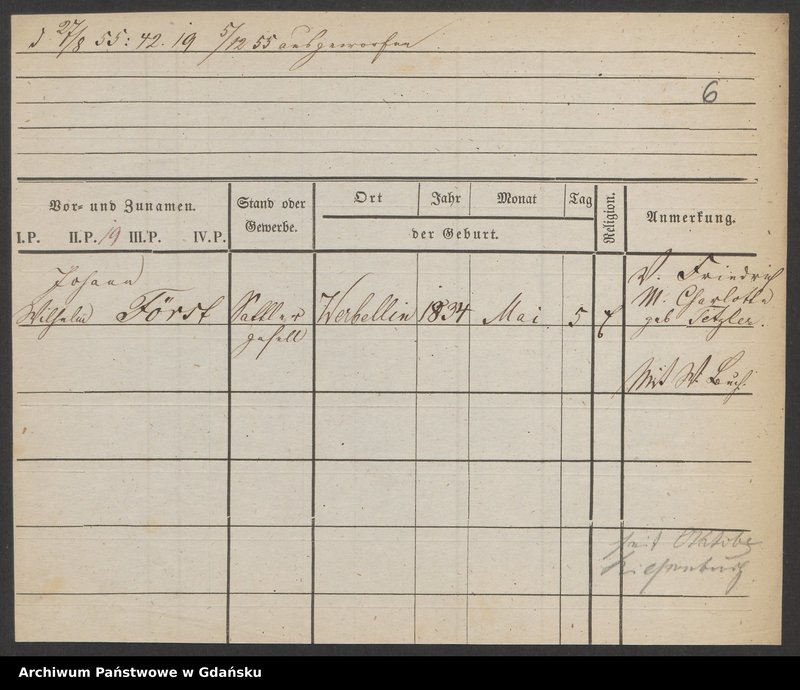 d 27/8 55: 42. 19 5/12 55 ausgeworfen
6
Vor- und Zunamen.
I.P. II.P. 19 III.P. IV.P.
Stand oder
Gewerbe.
Ort
Jahr
Monat
Tag
der Geburt.
Religion.
Anmerkung.
Johann
Wilhelm Först
Sattler
gesell
Werbellin
1834
Mai
5
V. Friedrich
M. Charlotte
geb Tetzler.
Mit W. Buch.
seit Oktober
Riesenburg
Archiwum Państwowe w Gdańsku